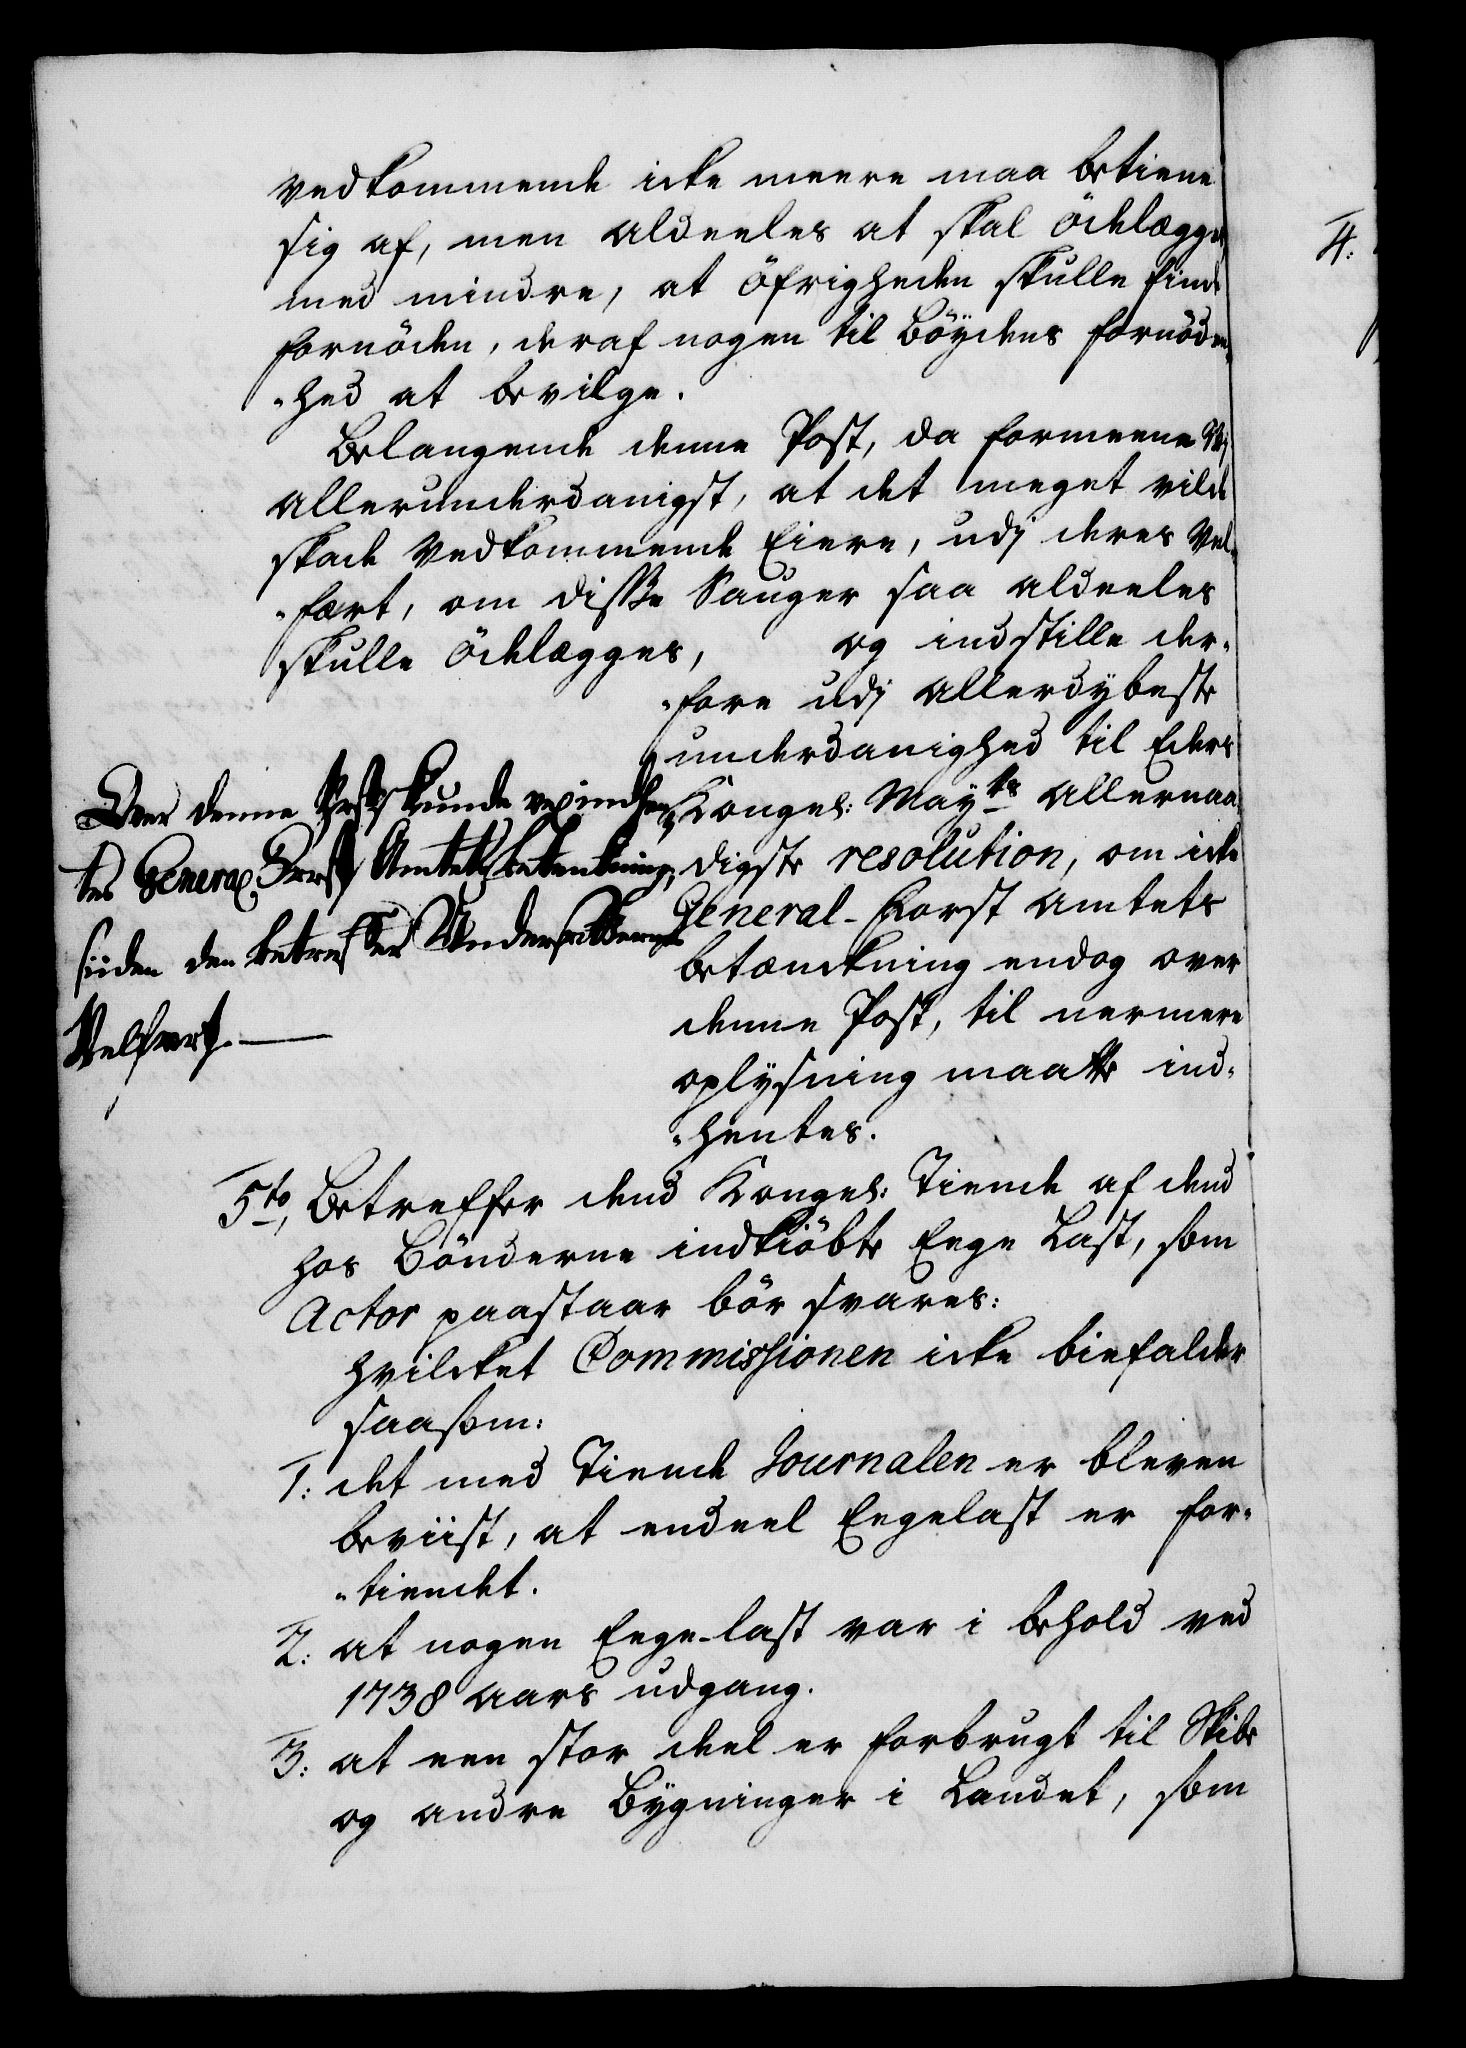 vedkommende icke meere maa betiene
sig af, men aldeeles at skal ödelægges
med mindre, at öfrigheden skulle finde
fornöden, deraf nogen til Böydens fornöden-
"hed at bevilge.
Belangende denne Post, da formeene Vj
allerunderdanigst, at det meget vilde
skade Vedkommende Eiere, udj deres Vel-
"fært, om disse Sauger saa aldeeles
skulle ödelægges,
og indstille der-
"fore udj allerdÿbeste
underdanighed til Eders
Kongel: Mayts allernaa-
digste resolution, om icke
General-Forst Amtets
betænckning endog over
denne Post, til nermere
oplysning maatte ind-
"hentes.
Over denne Post kunde indhen-
tes General Forst Amtets betenkning,
siiden den betreffer Undersaatternes
Velfært.
5to, Betreffer dend Kongel: Tiende af dend
hos Bönderne indkiöbte Eege Last, som
Actor paastaar bör svares:
hvilcket Commissionen icke biefalder
saasom:
1: det med Tiende Journalen er bleven
beviist, at endeel Eegelast er for-
"tiendet.
2: at nogen Eege-last var i behold ved
1738 aars udgang.
3: at een stor deel er forbrugt til Skibe
og andre Bÿgninger i Landet, som
4: